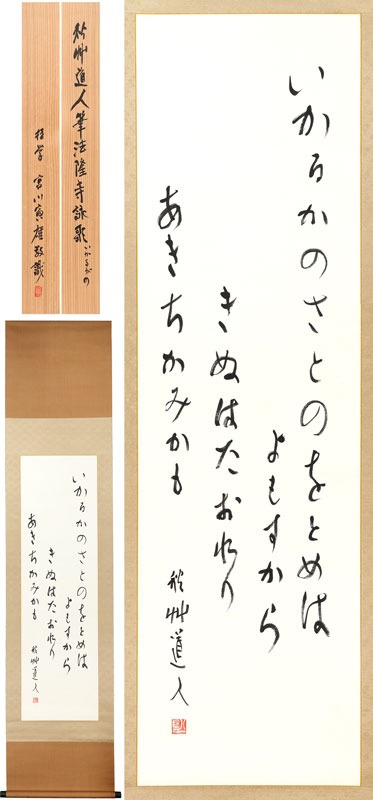 秋艸道人筆法隆寺詠歌いかるがの
後学 宮川寅雄敬識
いかるかのさとのをとめは
よもすから
きぬはたおれり
あきちかみかも
秋艸道人
いかるかのさとのをとめは
よもすから
きぬはたおれり
あきちかみかも
秋艸道人